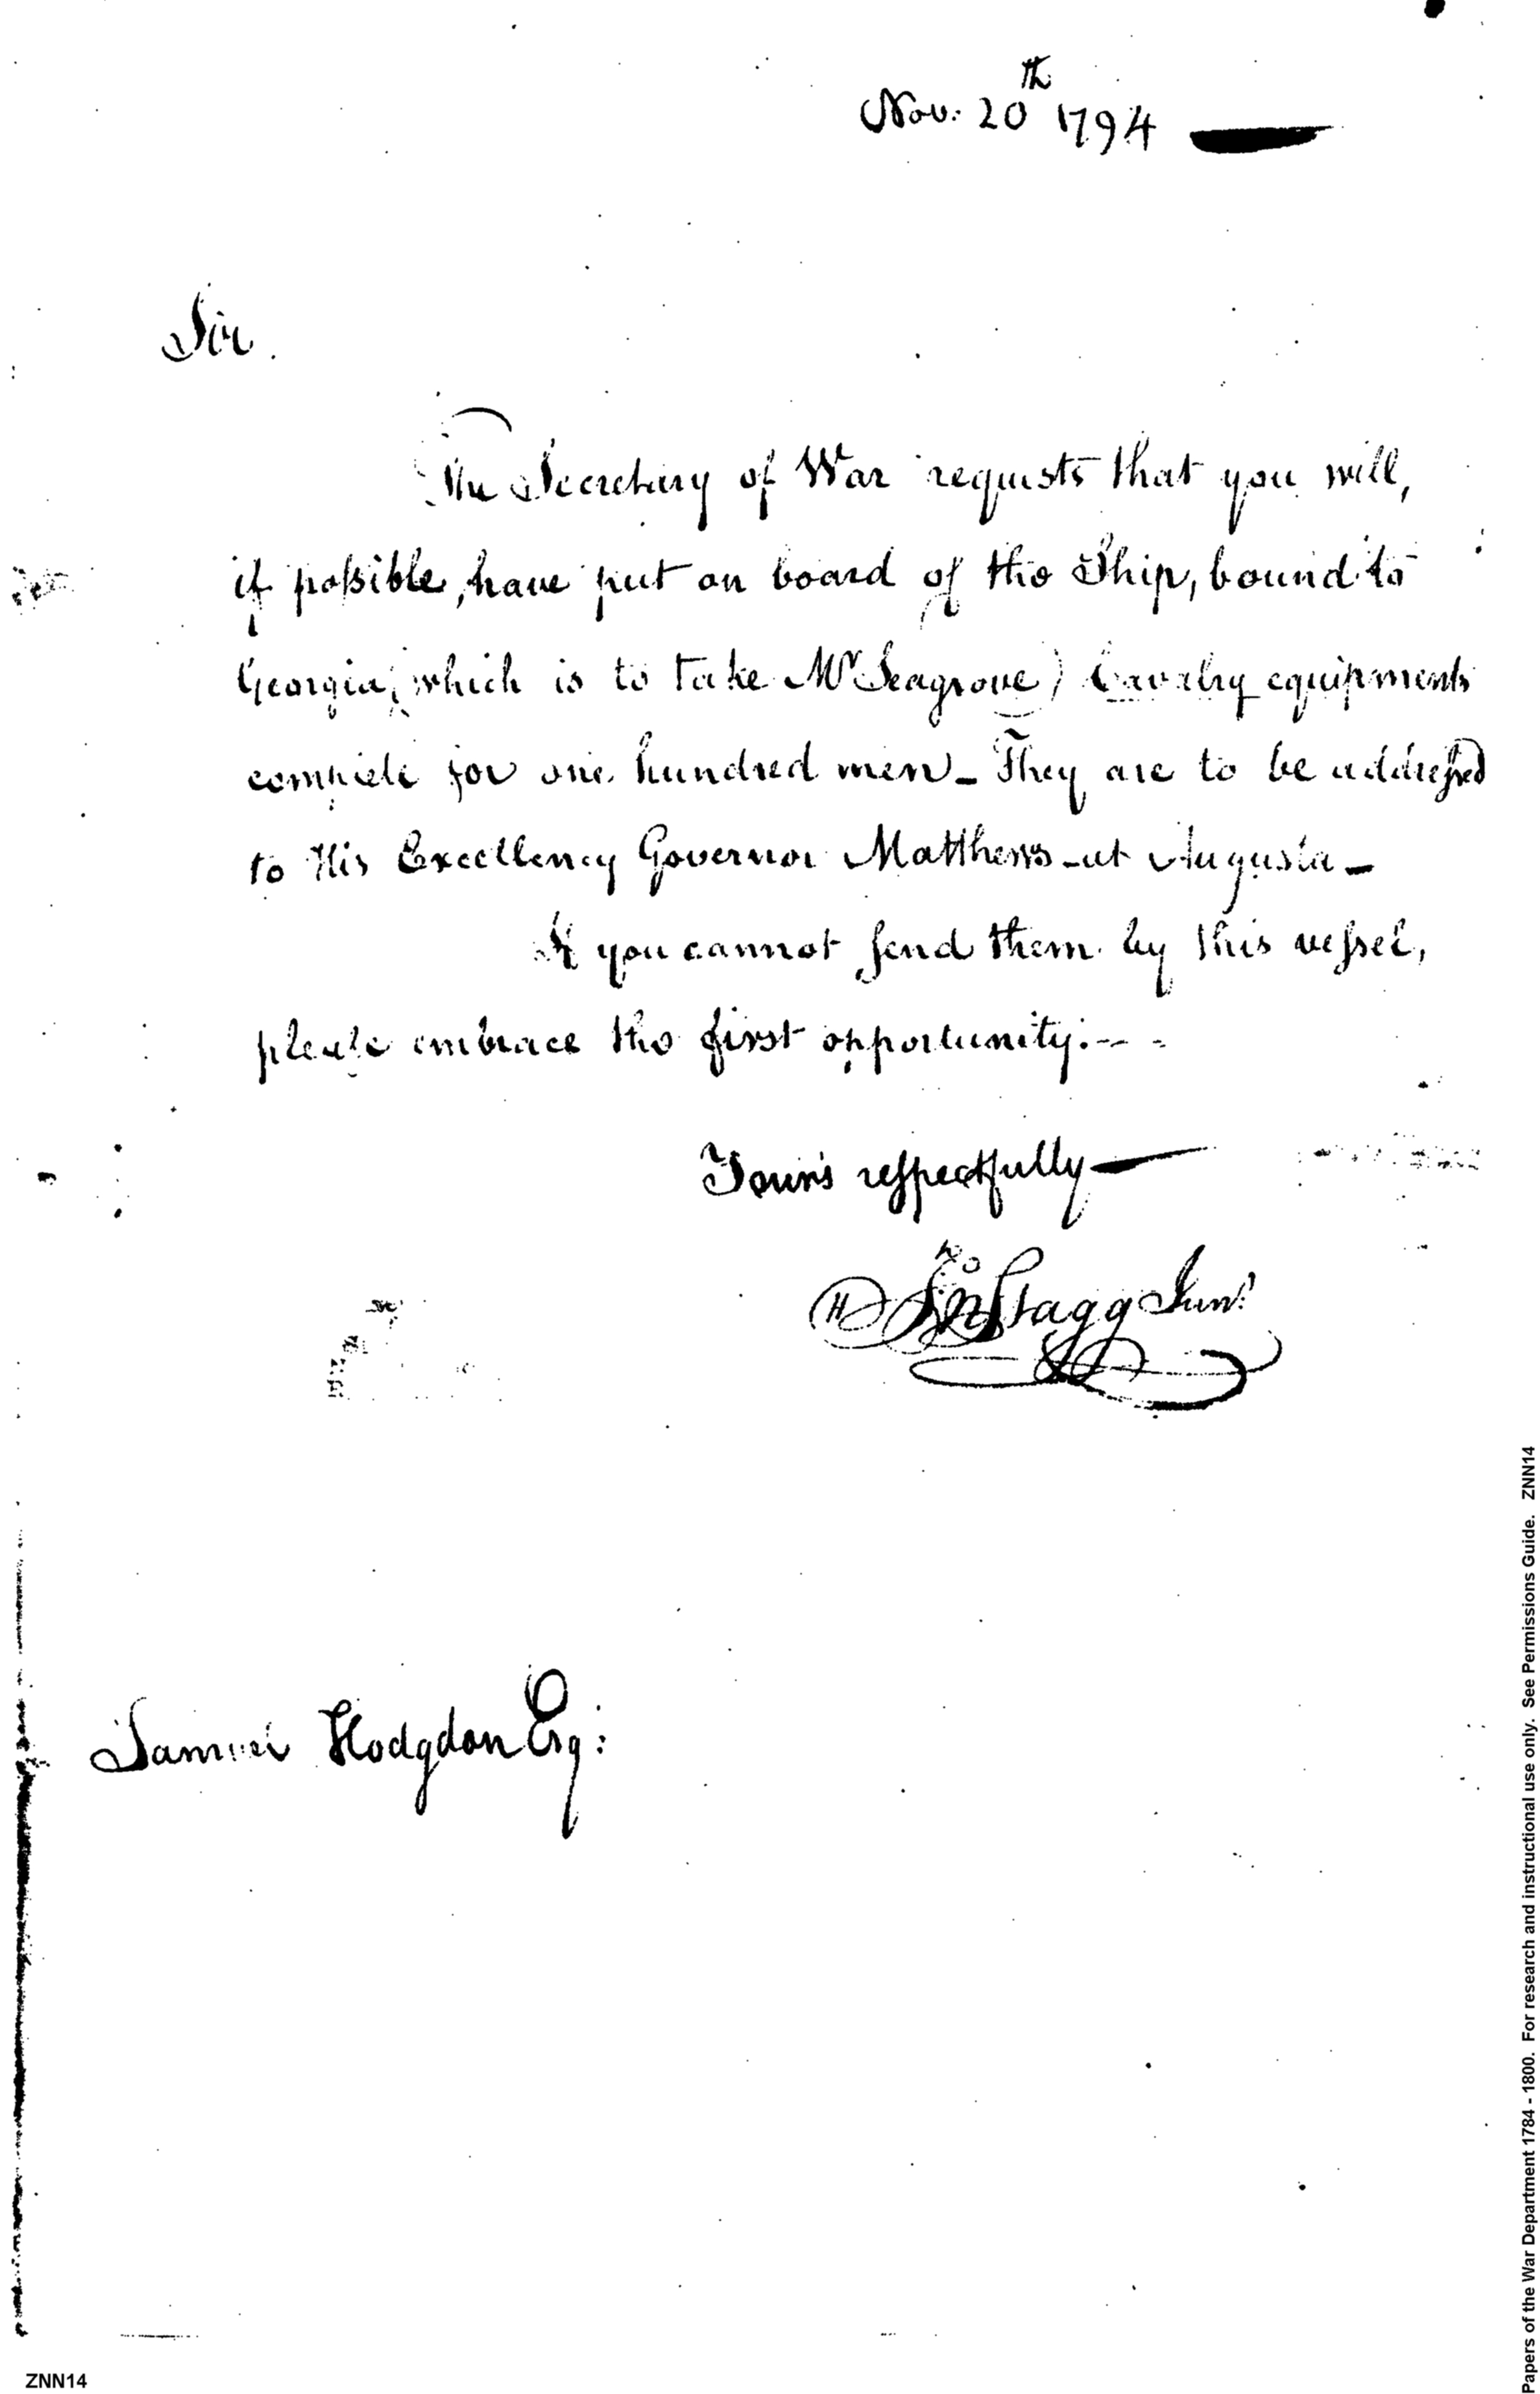 Nov: 20th 1794
Sir.
The Secretary of War requests that you will,
if possible, have put on board of the Ship, bound to
Georgia, (which is to take Mr Seagrove) Cavalry equipments
complete for one hundred men - They are to be addressed
to His Excellency Governor Matthews - at Augusta -
If you cannot send them by this vessel,
please embrace the first opportunity.---
Your's respectfully
Jno Stagg Junr.
Samuel Hodgdon Esq:
ZNN14
Papers of the War Department 1784 - 1800. For research and instructional use only. See Permissions Guide. ZNN14